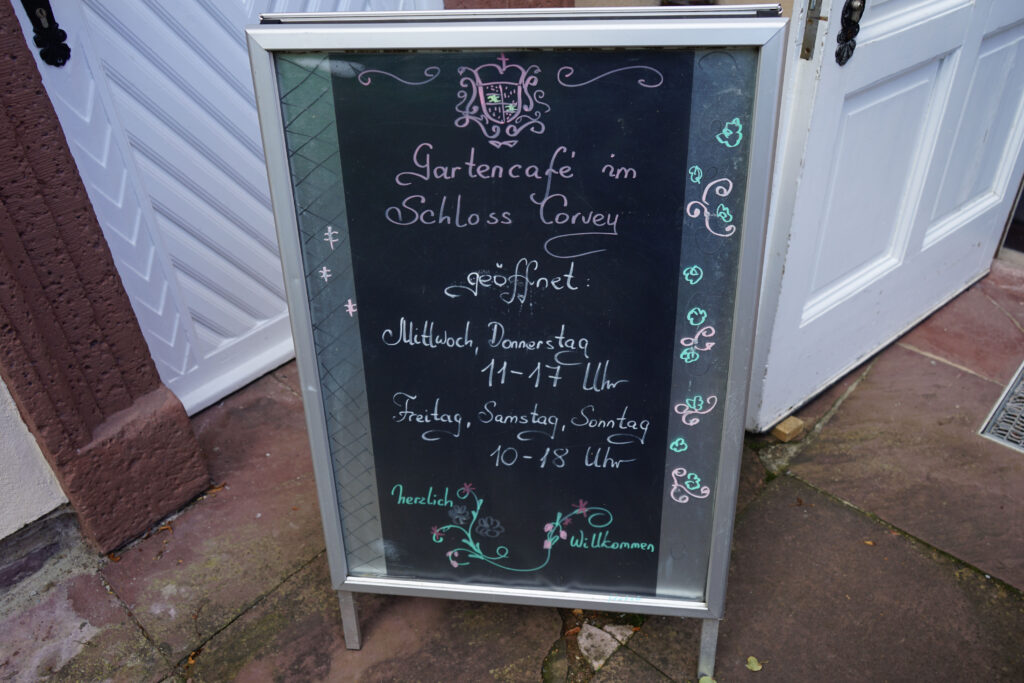 Gartencafé im
Schloss Corvey
geöffnet:
Mittwoch, Donnerstag
11-17 Uhr
Freitag, Samstag, Sonntag
10-18 Uhr
herzlich
Willkommen